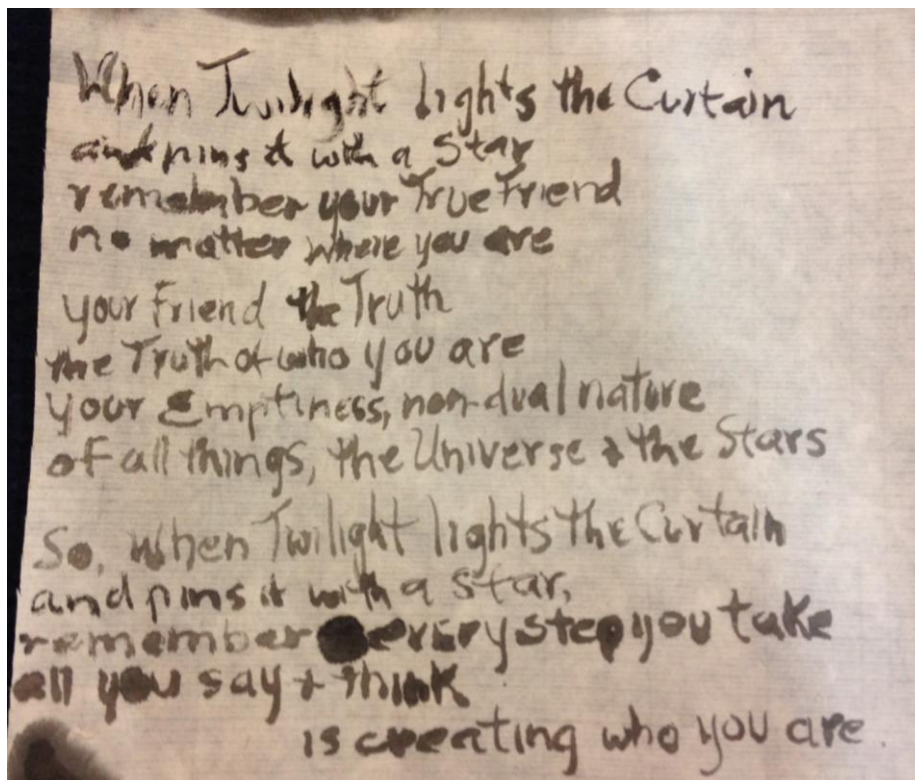 When Twilight lights the Curtain
and pins it with a Star
remember your True Friend
no matter where you are
your Friend the Truth
the Truth of who you are
your Emptiness, non-dual nature
of all things, the Universe & the Stars
So, when Twilight lights the Curtain
and pins it with a star,
remember every step you take
all you say + think
is creating who you are.